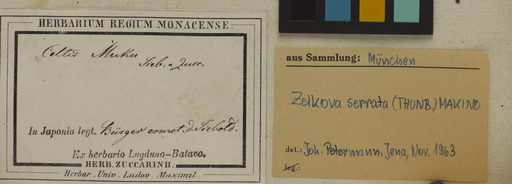 HERBARIUM REGIUM MONACENSE.
Celtis Muku
Sieb. & Zucc.
In Japonia legt. Bürger comot. d. Siebold.
Ex herbario Lugduno-Batavo.
HERB. ZUCCARINII.
Herbar. Univ. Ludov. Maximil.
aus Sammlung: München
Zelkova serrata (THUNB.) MAKINO
det.: Joh. Petermann, Jena, Nov. 1963
leg.: